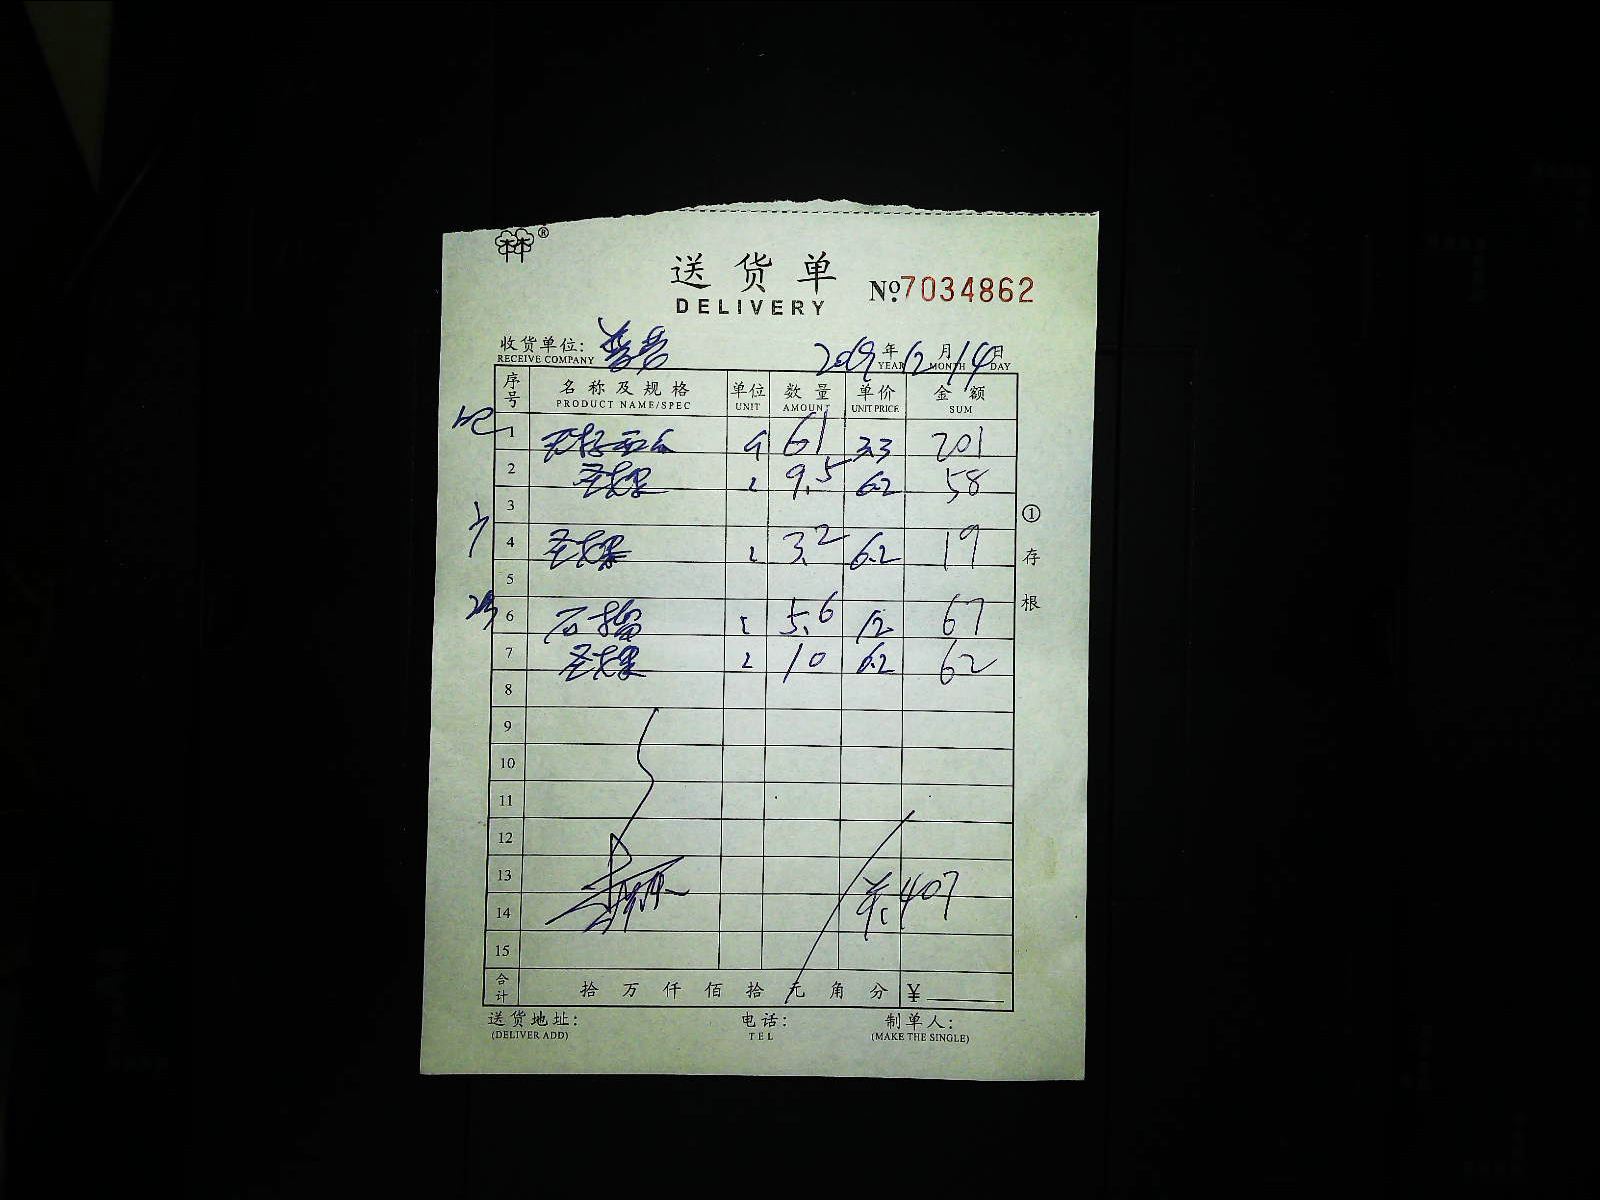 林®
送货单
DELIVERY
№7034862
收货单位: 2019年12月14日
RECEIVE COMPANY YEAR MONTH DAY
序号 名称及规格 单位 数量 单价 金额
PRODUCT NAME/SPEC UNIT AMOUNT UNIT PRICE SUM
1 61 3.3 201
2 圣女果 9.5 6.2 58
3
4 圣女果 3.2 6.2 19
5
6 石榴 5.6 12 67
7 圣女果 10 6.2 62
8
9
10
11
12
13
14 407
15
合计 拾 万 仟 佰 拾 元 角 分 ¥
①存根
送货地址: 电话: 制单人:
(DELIVER ADD) TEL (MAKE THE SINGLE)